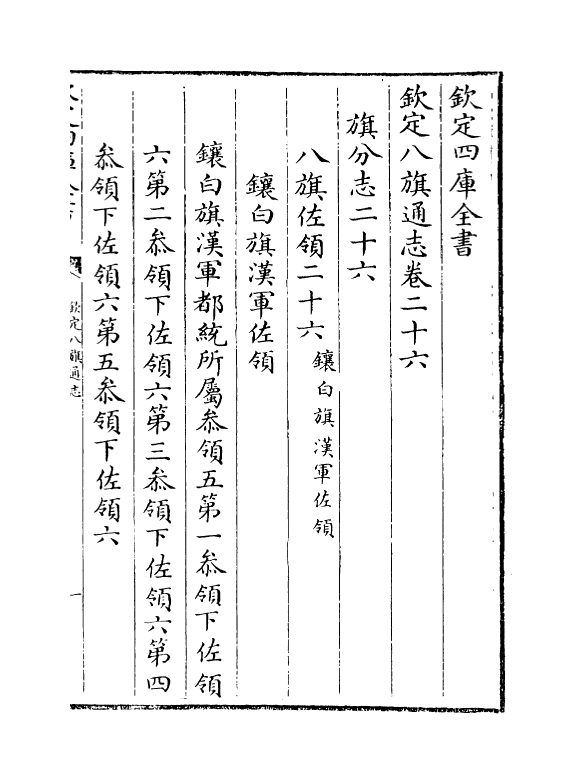 欽定四庫全書
欽定八旗通志卷二十六
旗分志二十六
八旗佐領二十六 鑲白旗漢軍佐領
鑲白旗漢軍佐領
鑲白旗漢軍都統所屬叅領五第一叅領下佐領
六第二叅領下佐領六第三叅領下佐領六第四
叅領下佐領六第五叅領下佐領六
欽定八旗通志
一